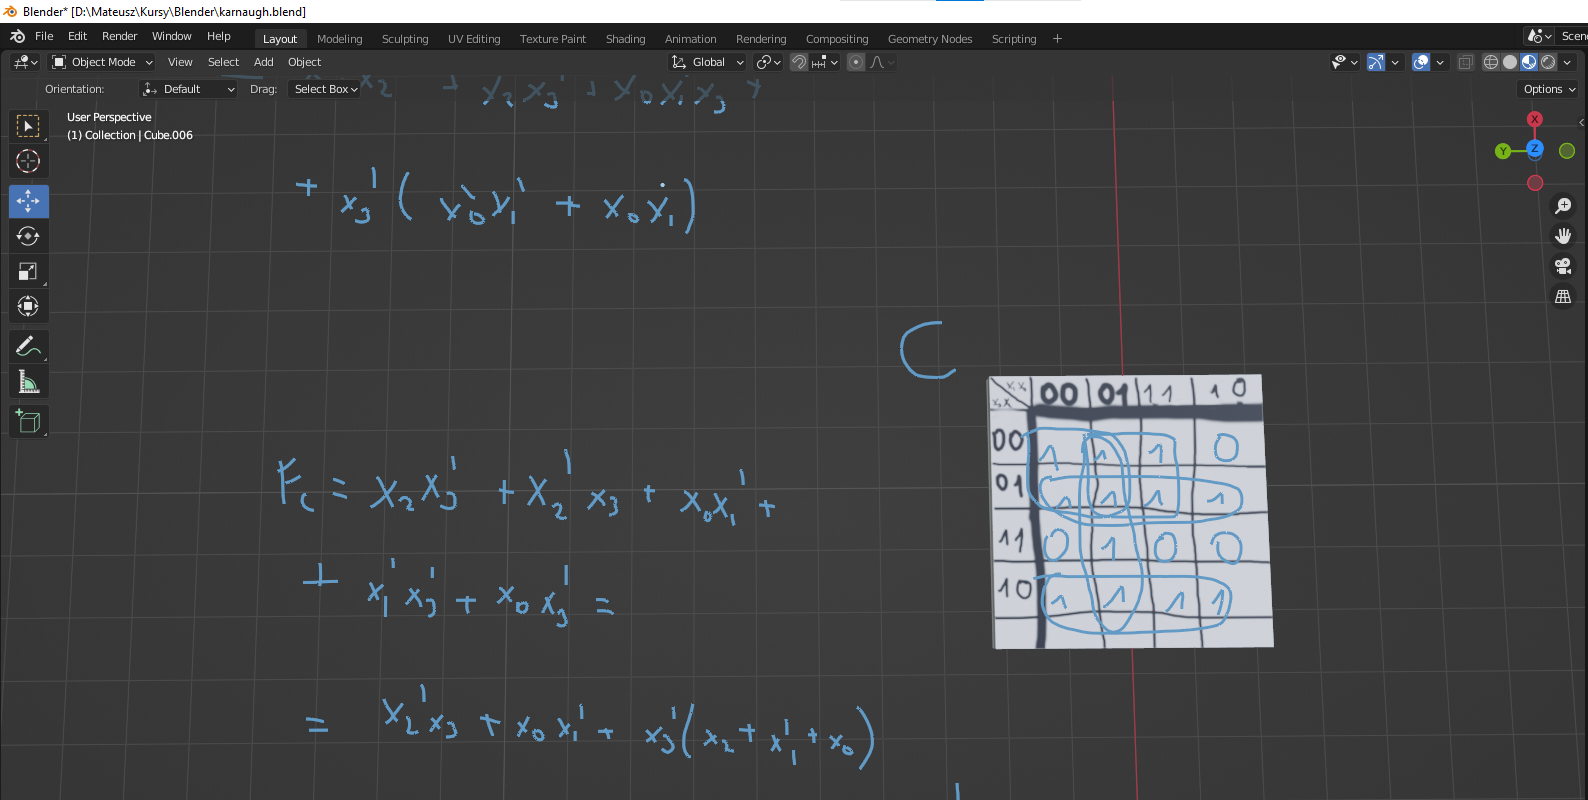 Blender* [D:\Mateusz\Kursy\Blender\karnaugh.blend]
File Edit Render Window Help Layout Modeling Sculpting UV Editing Texture Paint Shading Animation Rendering Compositing Geometry Nodes Scripting + Scen
Object Mode View Select Add Object Global
Orientation: Default Drag: Select Box Options
User Perspective
(1) Collection | Cube.006
X
Y Z
+ x3' ( x0'x1' + x0x1 )
C
00 01 11 10
00 1 1 1 0
01 1 1 1 1
11 0 1 0 0
10 1 1 1 1
Fc = x2x3' + x2'x3 + x0x1' +
+ x1'x3' + x0x3' =
= x2'x3 + x0x1' + x3'(x2 + x1' + x0)